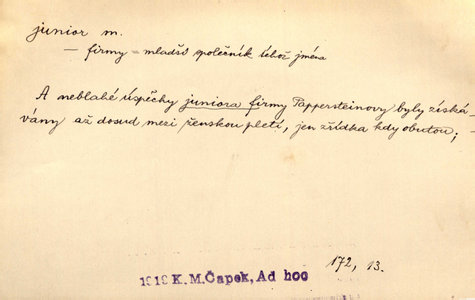 junior m.
— firmy – mladší společník téhož jména
A neblahé úspěchy juniora firmy Pappersteinovy byly získá-
vány až dosud mezi ženskou pletí, jen zřídka kdy obutou; –
172, 13.
1919 K. M. Čapek, Ad hoc